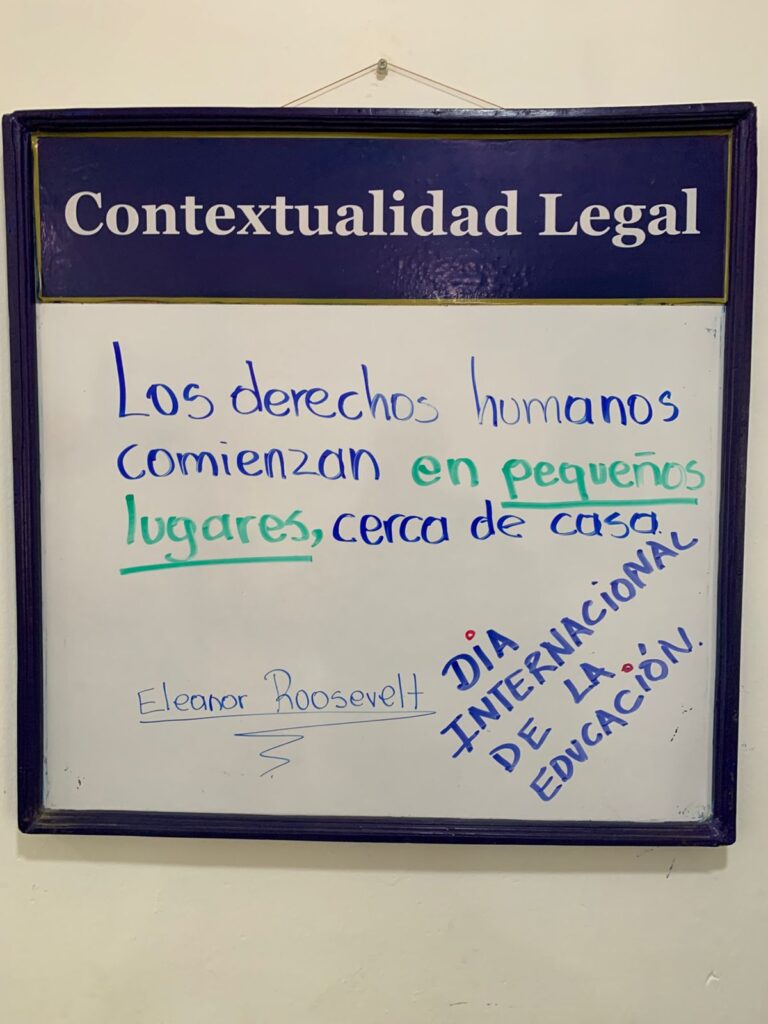 Contextualidad Legal
Los derechos humanos
comienzan en pequeños
lugares, cerca de casa.
Eleanor Roosevelt
DIA
INTERNACIONAL
DE LA
EDUCACIÓN.